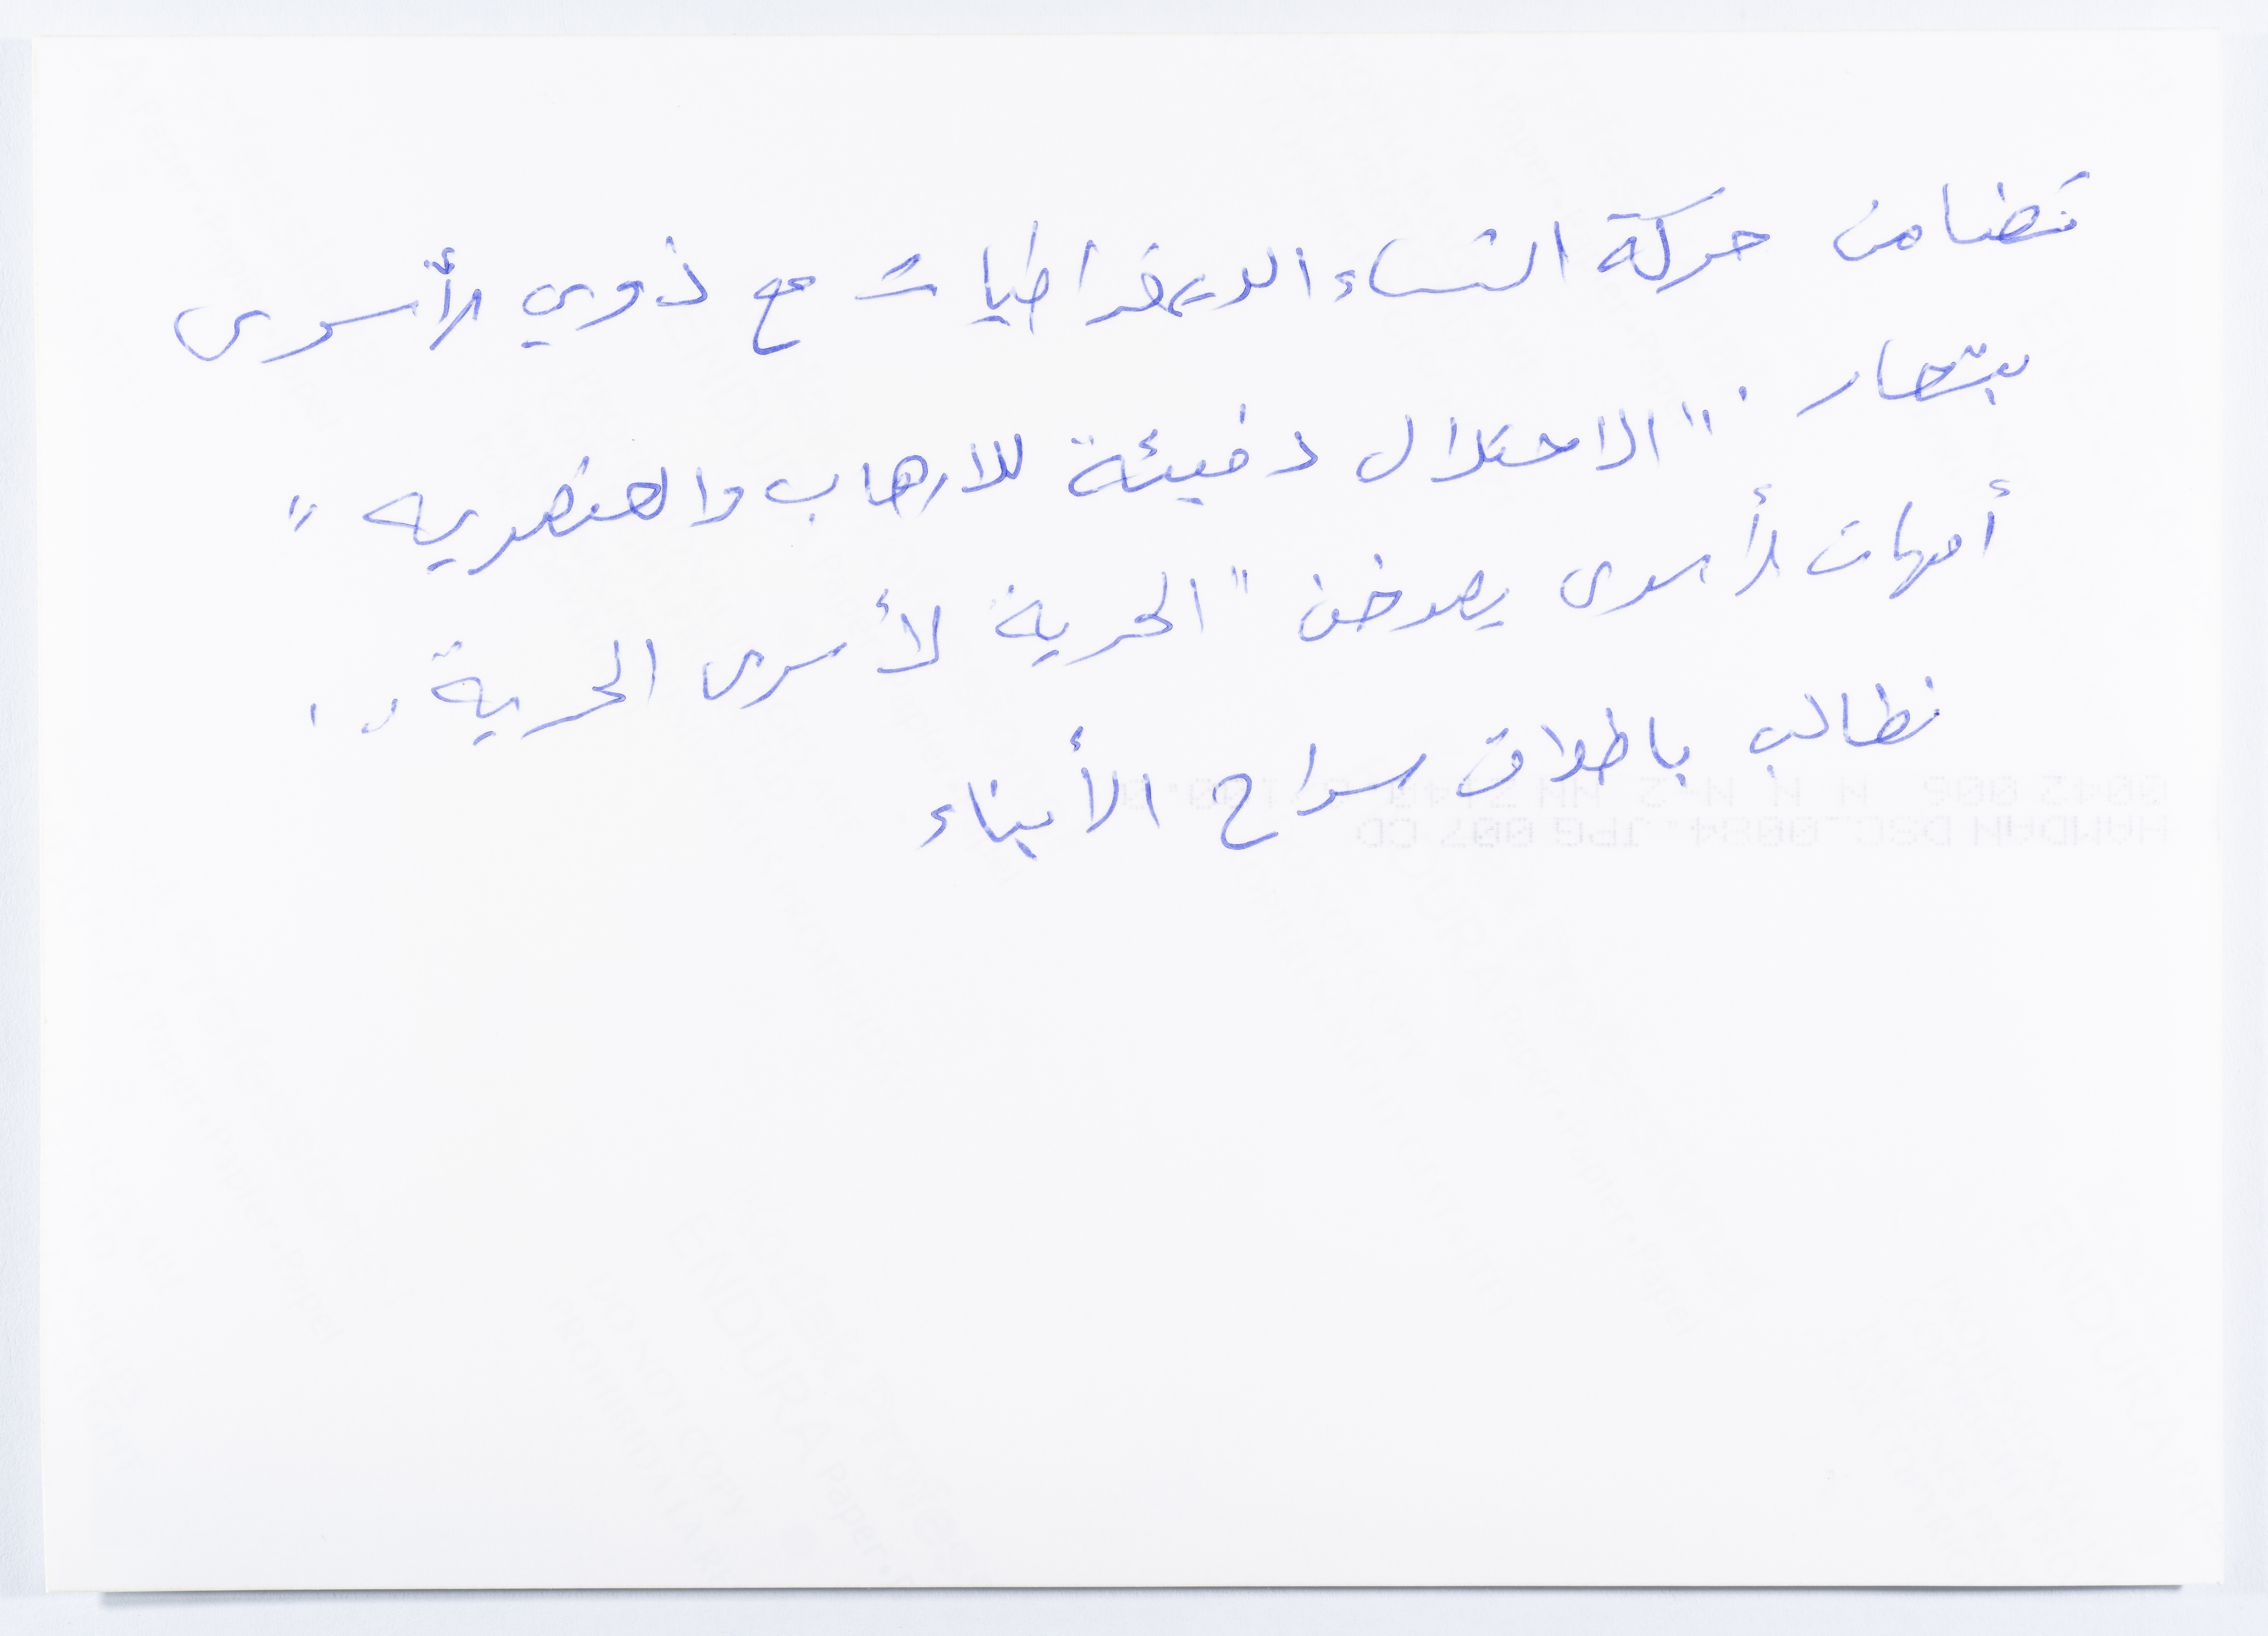 تضامن حركة النساء الديمقراطيات مع ذوي الأسرى
بشعار: "الاحتلال دفيئة للارهاب والعنصريه"
أمهات الأسرى يصرخن "الحرية لأسرى الحرية"
نطالب باطلاق سراح الأبناء